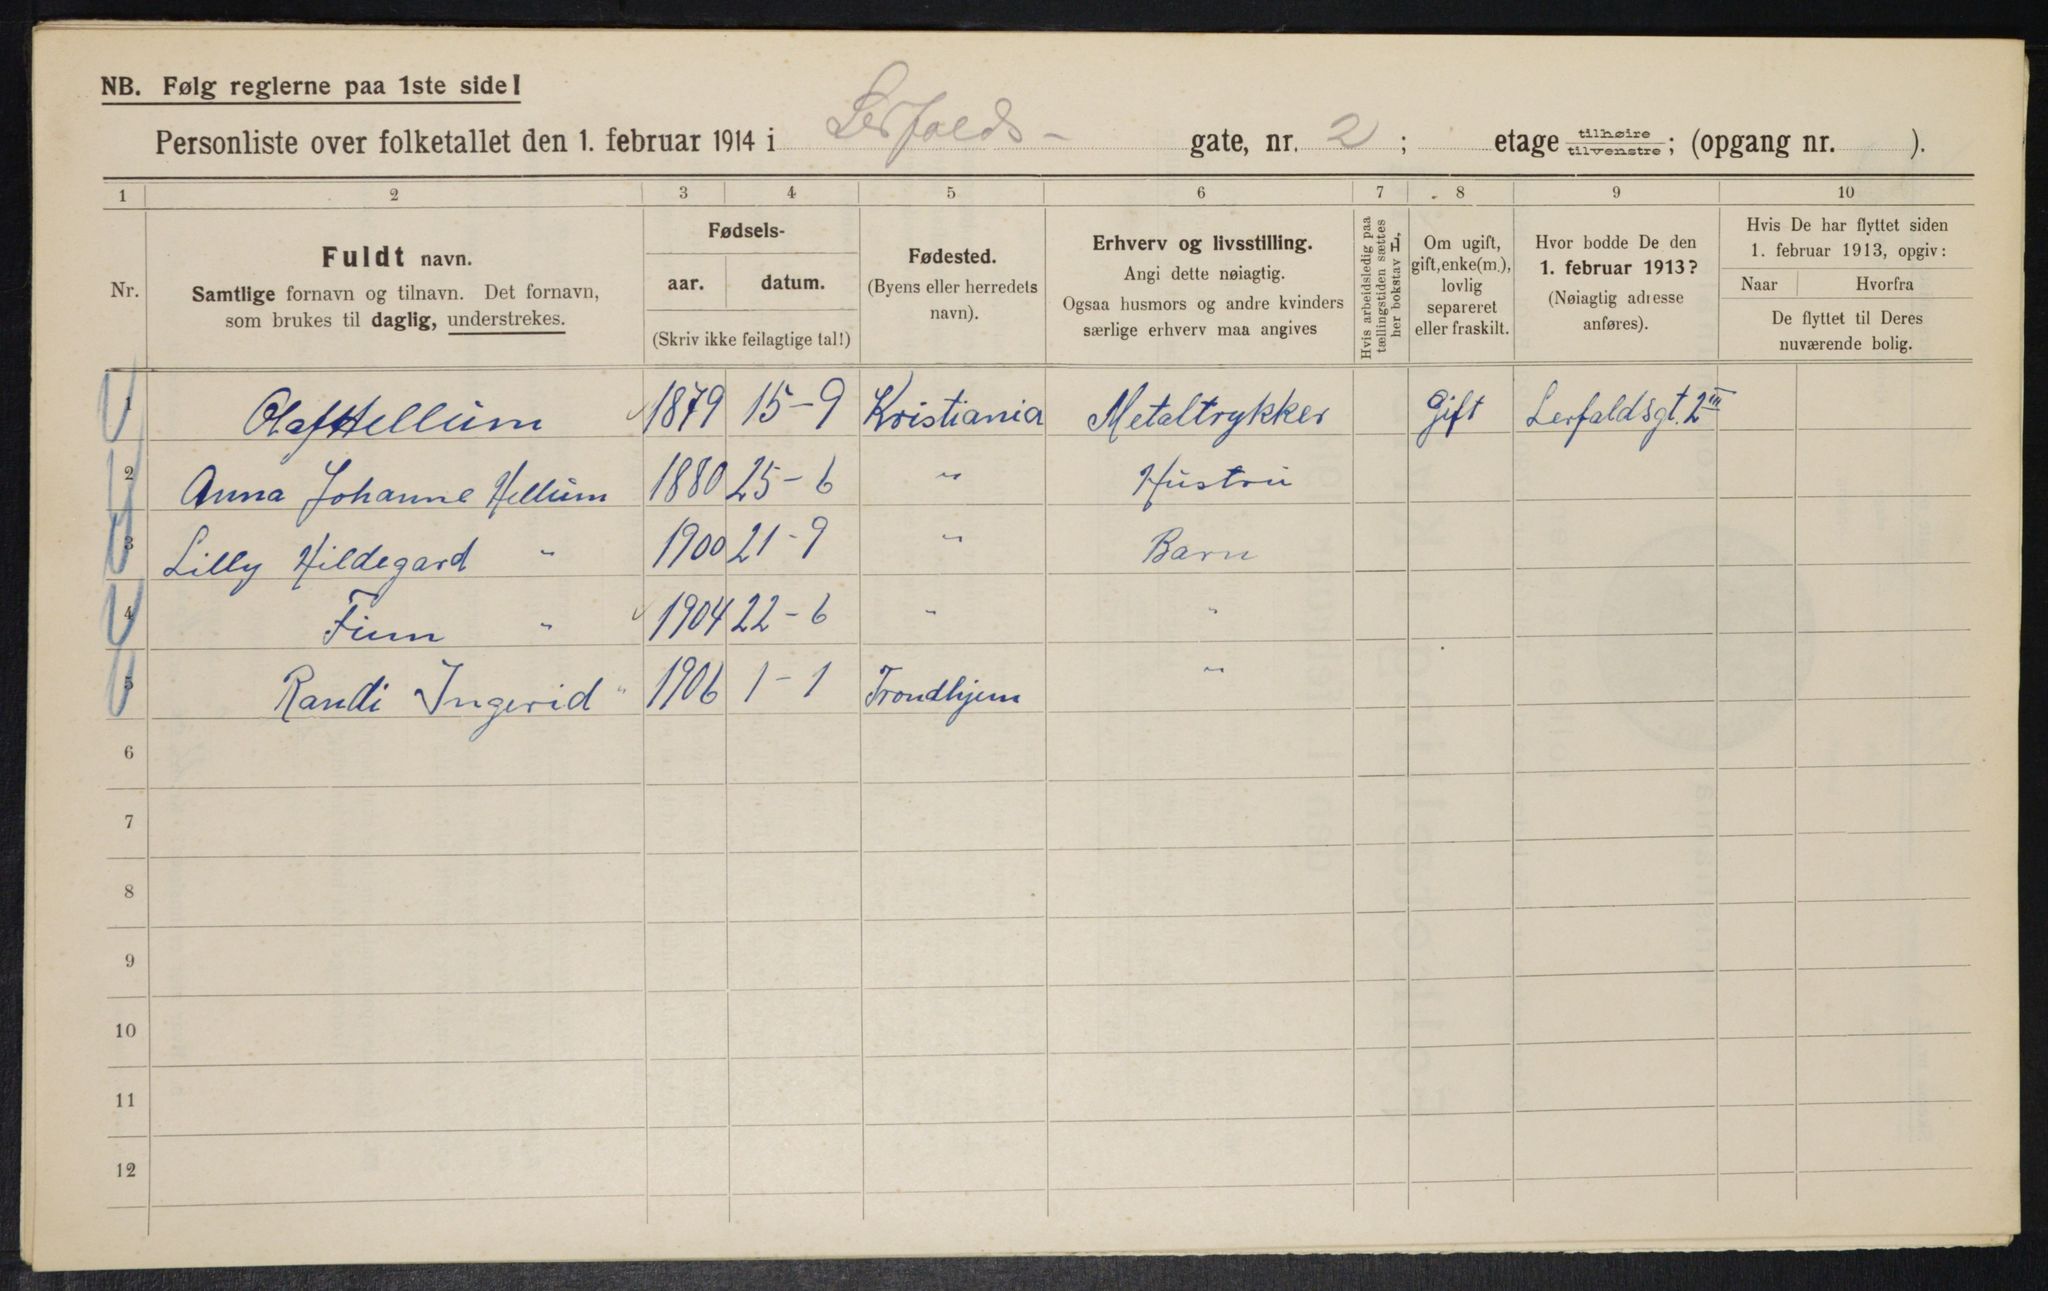 NB. Følg reglerne paa 1ste side!
Personliste over folketallet den 1. februar 1914 i Lerfalds- gate, nr. 2; etage tilhøire/tilvenstre; (opgang nr. ).
1 2 3 4 5 6 7 8 9 10
Nr.
Fuldt navn.
Samtlige fornavn og tilnavn. Det fornavn,
som brukes til daglig, understrekes.
Fødsels-
aar. datum.
(Skriv ikke feilagtige tal!)
Fødested.
(Byens eller herredets
navn).
Erhverv og livsstilling.
Angi dette nøiagtig.
Ogsaa husmors og andre kvinders
særlige erhverv maa angives
Hvis arbeidsledig paa
tællingstiden sættes
her bokstav L,
Om ugift,
gift, enke(m.),
lovlig
separeret
eller fraskilt.
Hvor bodde De den
1. februar 1913?
(Nøiagtig adresse
anføres).
Hvis De har flyttet siden
1. februar 1913, opgiv:
Naar Hvorfra
De flyttet til Deres
nuværende bolig.
1 Olaf Hellum 1879 15-9 Kristiania Metaltrykker Gift Lerfaldsgt. 2 III
2 Anna Johanne Hellum 1880 25-6 " Hustru
3 Lilly Hildegard " 1900 21-9 " Barn
4 Finn " 1904 22-6 " "
5 Randi Ingerid " 1906 1-1 Trondhjem "
6
7
8
9
10
11
12